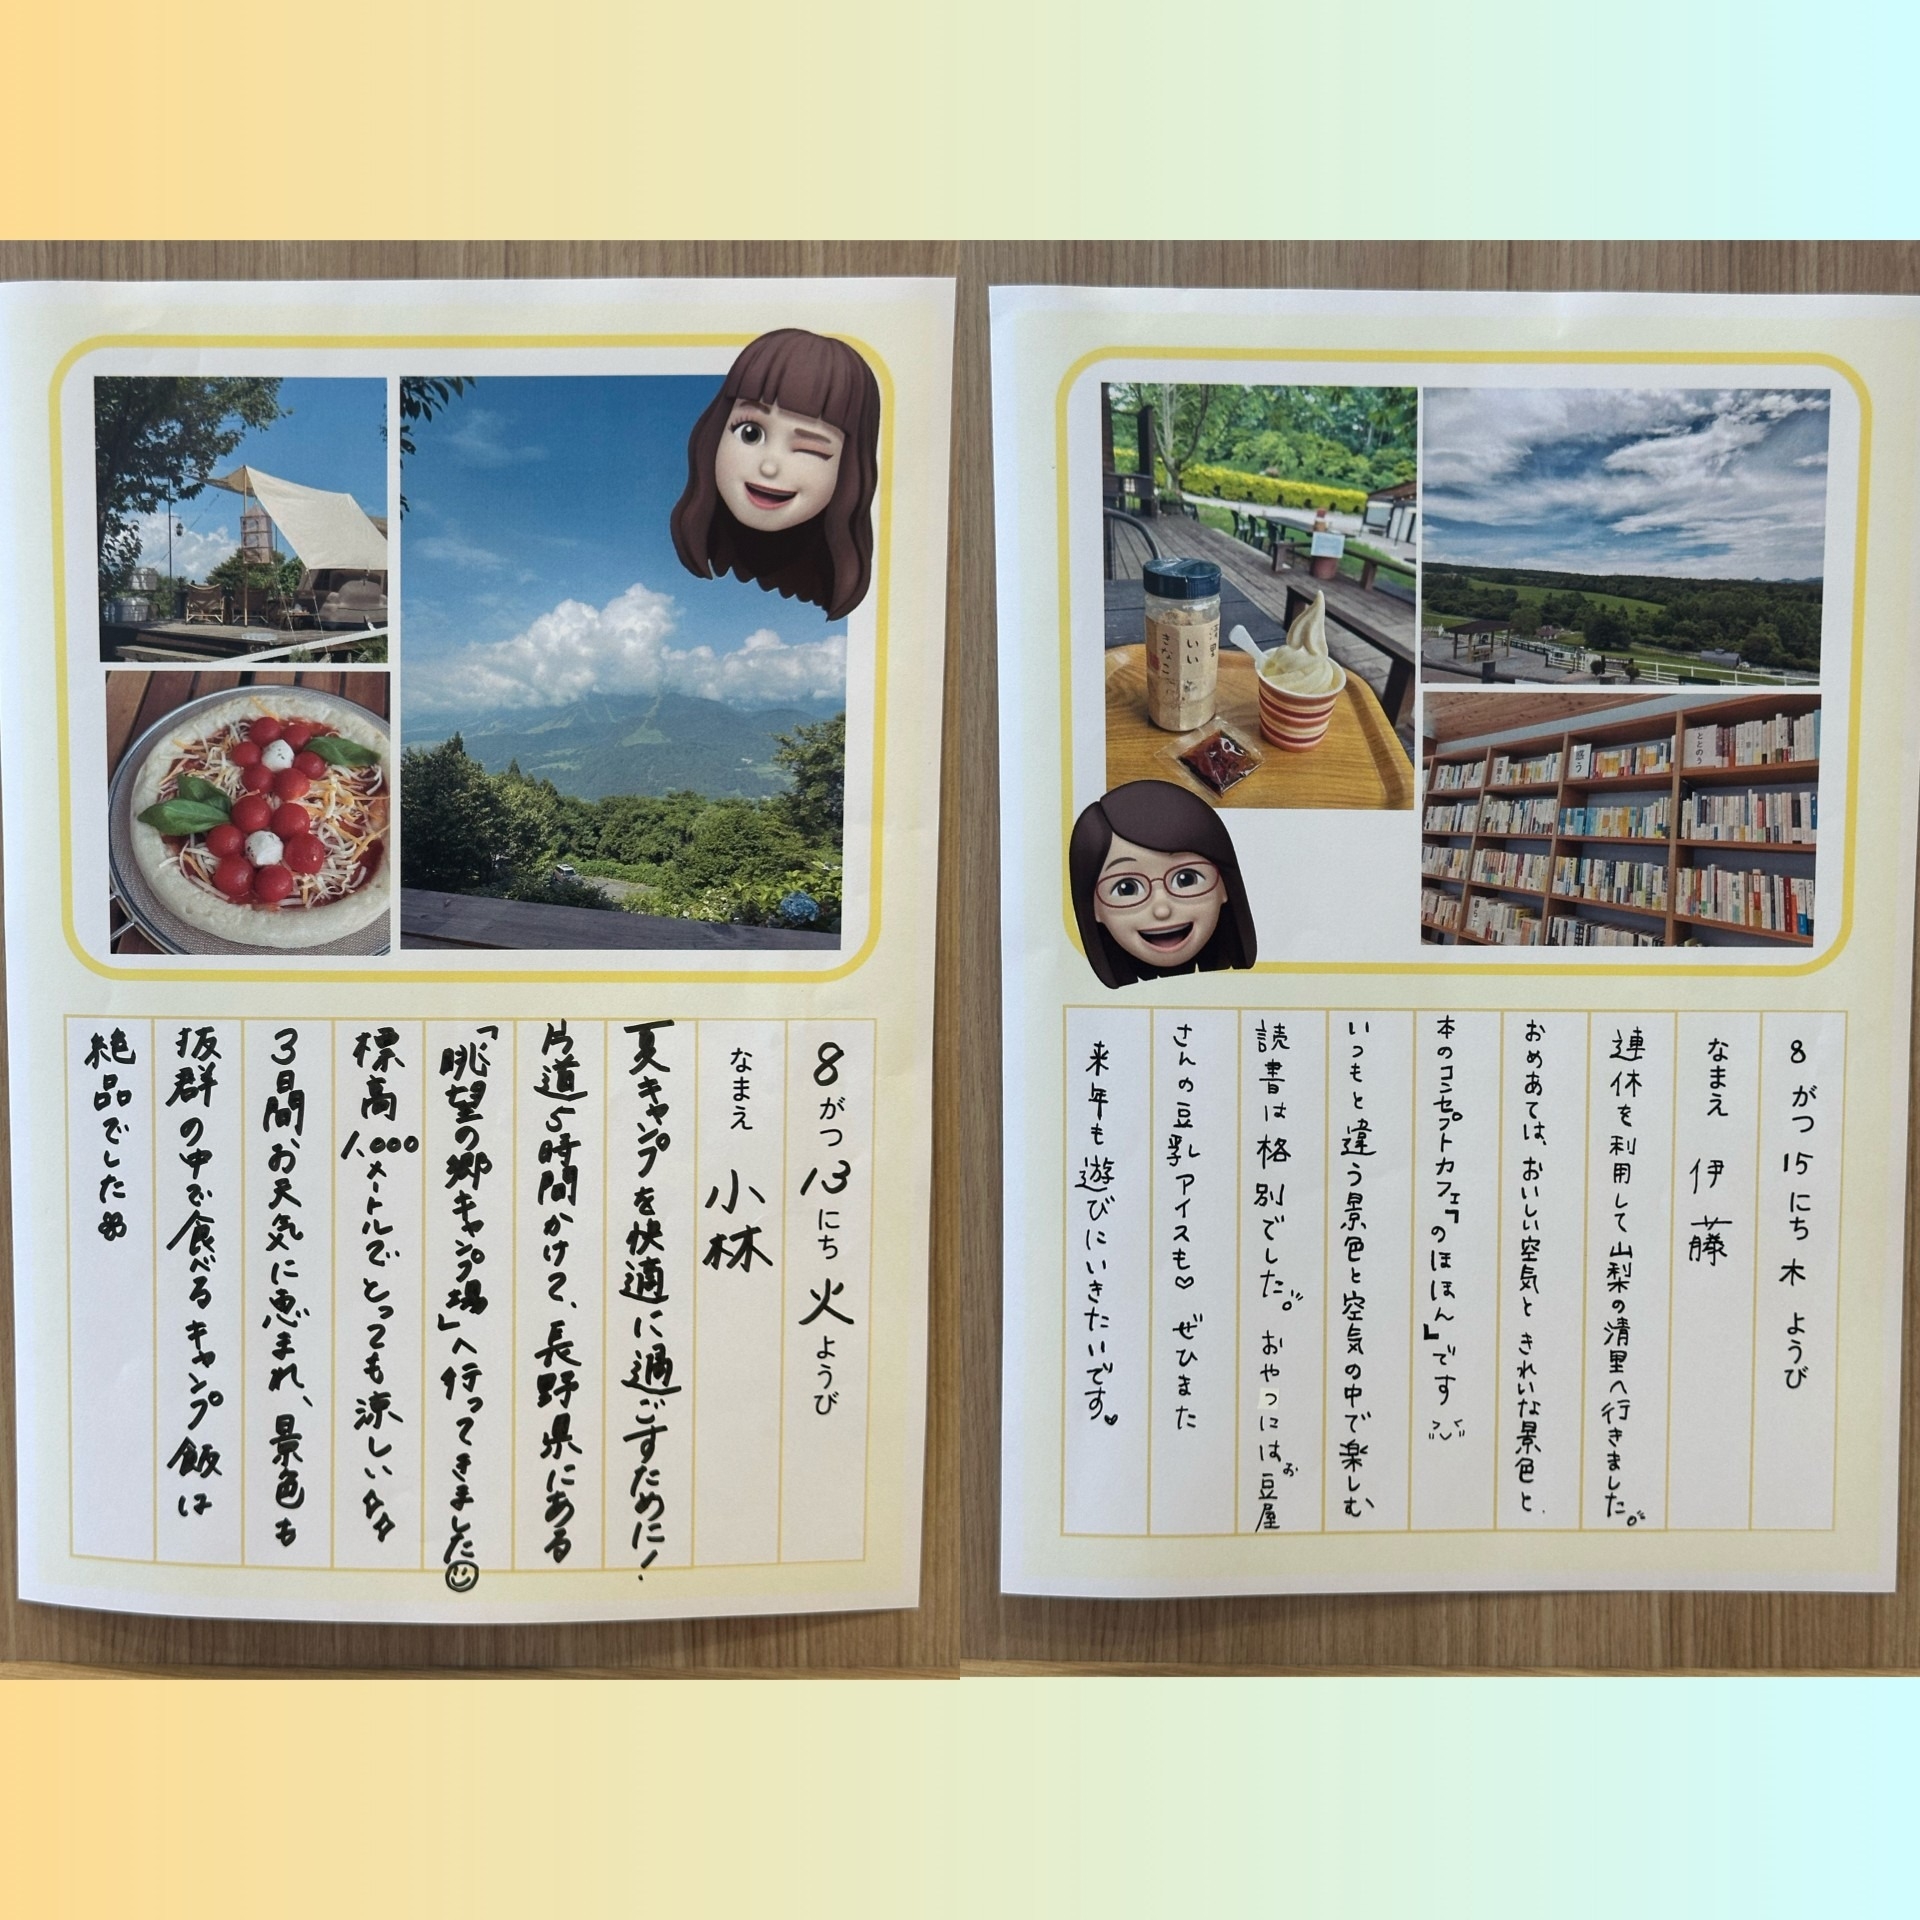 8がつ13にち火ようび
なまえ 小林
夏キャンプを快適に過ごすために！
片道5時間かけて、長野県にある
「眺望の郷キャンプ場」へ行ってきました
標高1,000メートルでとっても涼しい
3日間お天気に恵まれ、景色も
抜群の中で食べるキャンプ飯は
絶品でした
8がつ15にち木ようび
なまえ 伊藤
連休を利用して山梨の清里へ行きました。
おめあては、おいしい空気ときれいな景色と、
本のコンセプトカフェ「のほほん」です
いつもと違う景色と空気の中で楽しむ
読書は格別でした。おやつにはお豆屋
さんの豆乳アイスも♡ ぜひまた
来年も遊びにいきたいです♥
清里
いい
きなこ
惑う
ととのう